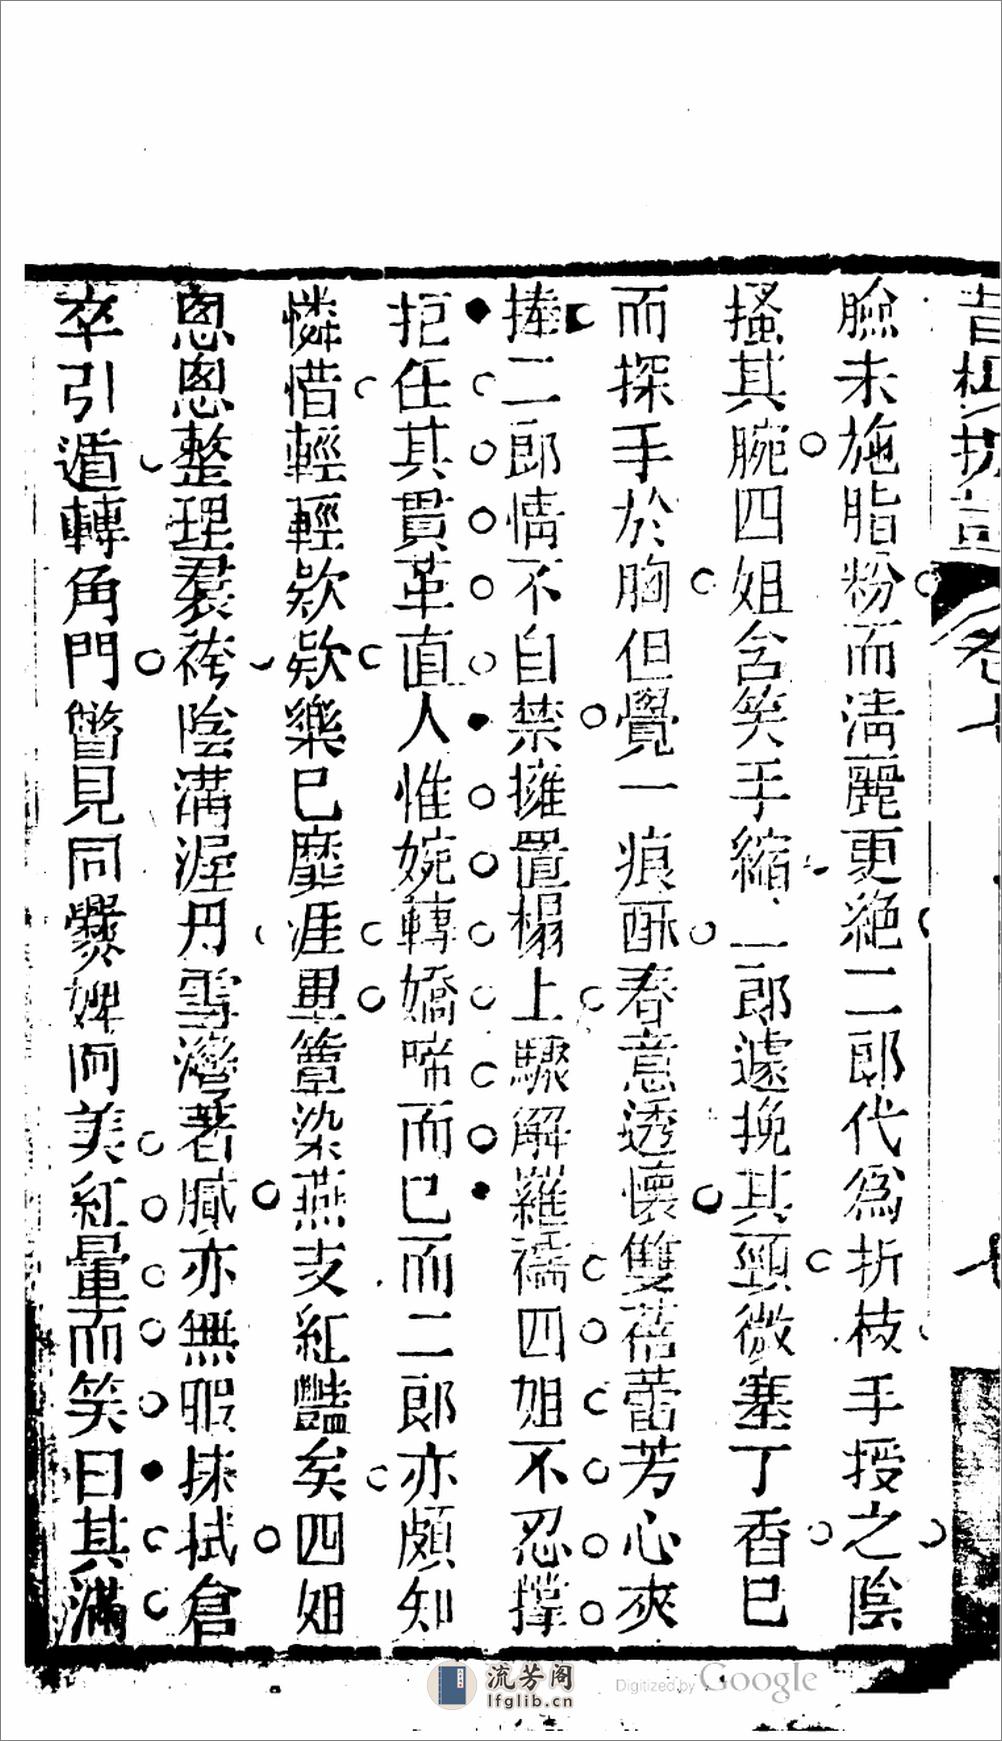 昔柳摭談 卷七 七
臉未施脂粉而清麗更絕二郎代為折枝手授之陰
搔其腕四姐含笑手縮二郎遽挽其頸微塞丁香已
而探手於胸但覺一痕酥春意透懷雙蓓蕾芳心夾
捧二郎情不自禁擁置榻上驟解羅襦四姐不忍撐
拒任其貫革直人惟婉轉嬌啼而已而二郎亦頗知
憐惜輕輕款款樂已靡涯畢簟染燕支紅豔矣四姐
悤悤整理裙袴陰溝渥丹雪灣著膩亦無暇抹拭倉
卒引遁轉角門瞥見同爨婢阿美紅暈而笑曰其滿
流芳阁
lfglib.cn
Digitized by Google